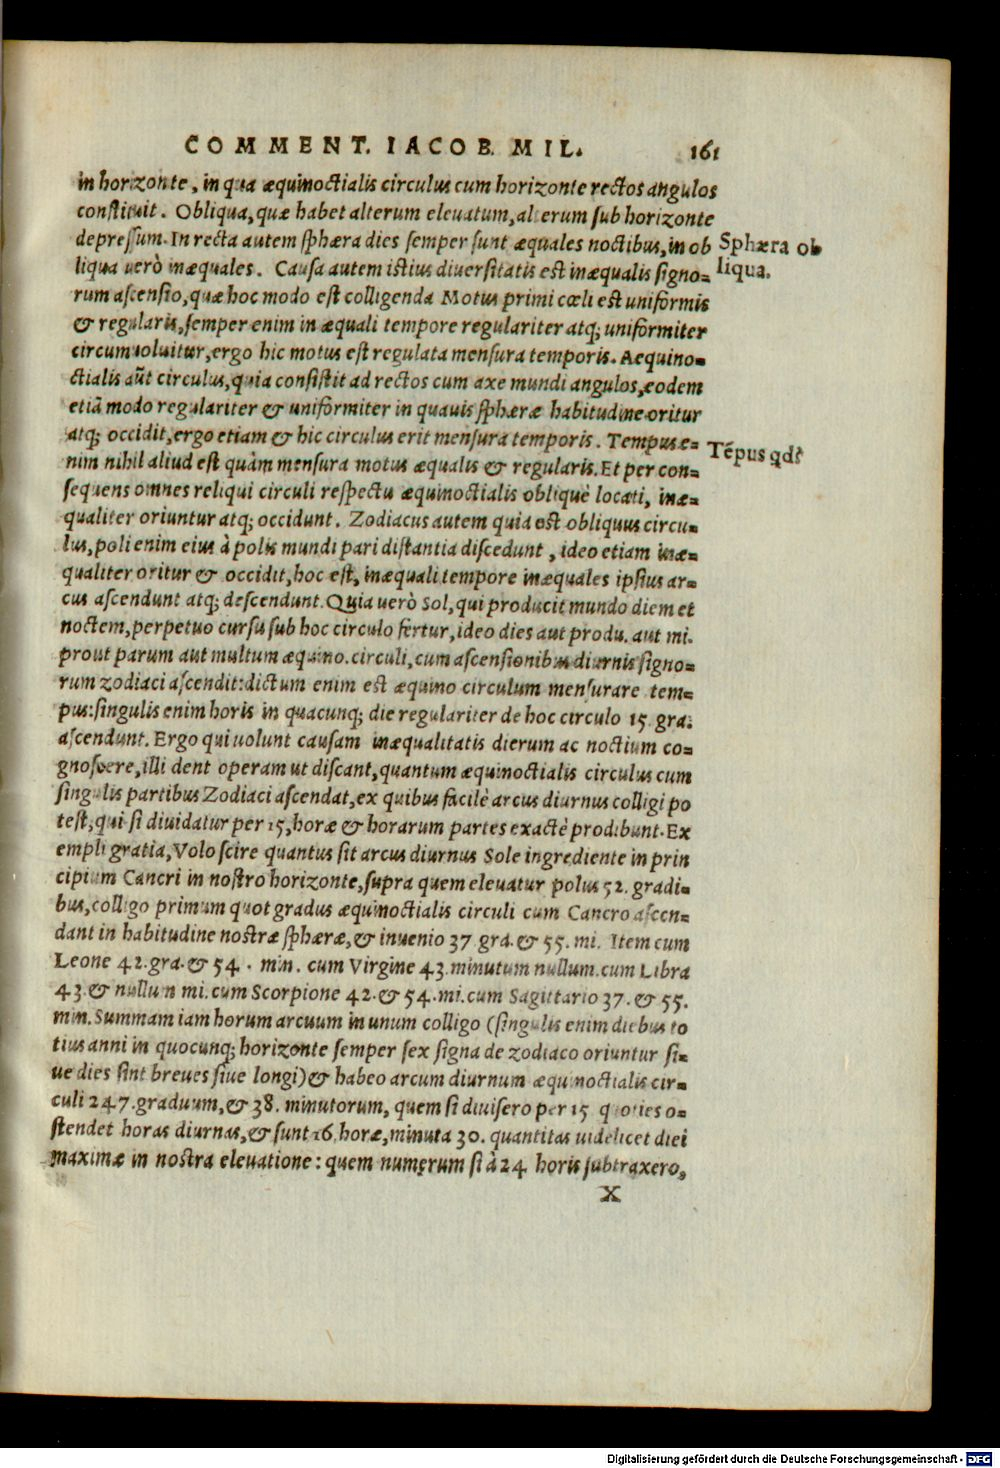 COMMENT. IACOB. MIL. 161
in horizonte, in qua æquinoctialis circulus cum horizonte rectos angulos
constituit. Obliqua, quæ habet alterum eleuatum, alterum sub horizonte
depressum. In recta autem sphæra dies semper sunt æquales noctibus, in ob
liqua verò inæquales. Causa autem istius diuersitatis est inæqualis signo-
Sphæra ob
liqua.
rum ascensio, quæ hoc modo est colligenda Motus primi cœli est uniformis
& regularis, semper enim in æquali tempore regulariter atq; uniformiter
circumuoluitur, ergo hic motus est regulata mensura temporis. Aequino-
ctialis aũt circulus, quia consistit ad rectos cum axe mundi angulos, eodem
etiã modo regulariter & uniformiter in quauis sphæræ habitudine oritur
atq; occidit, ergo etiam & hic circulus erit mensura temporis. Tempus e-
nim nihil aliud est quàm mensura motus æqualis & regularis. Et per con-
Tẽpus qd?
sequens omnes reliqui circuli respectu æquinoctialis obliquè locati, inæ-
qualiter oriuntur atq; occidunt. Zodiacus autem quia est obliquus circu-
lus, poli enim eius à polis mundi pari distantia discedunt, ideo etiam inæ-
qualiter oritur & occidit, hoc est, inæquali tempore inæquales ipsius ar-
cus ascendunt atq; descendunt. Quia verò Sol, qui producit mundo diem et
noctem, perpetuo cursu sub hoc circulo fertur, ideo dies aut produ. aut mi.
prout parum aut multum æquino. circuli, cum ascensionibus diurnis signo-
rum zodiaci ascendit: dictum enim est æquino circulum mensurare tem-
pus: singulis enim horis in quacunq; die regulariter de hoc circulo 15 gra.
ascendunt. Ergo qui uolunt causam inæqualitatis dierum ac noctium co-
gnoscere, illi dent operam ut discant, quantum æquinoctialis circulus cum
singulis partibus Zodiaci ascendat, ex quibus facilè arcus diurnus colligi po
test, qui si diuidatur per 15, horæ & horarum partes exactè prodibunt. Ex
empli gratia, Volo scire quantus sit arcus diurnus Sole ingrediente in prin
cipium Cancri in nostro horizonte, supra quem eleuatur polus 52. gradi-
bus, colligo primum quot gradus æquinoctialis circuli cum Cancro ascen-
dant in habitudine nostræ sphæræ, & inuenio 37 gra. & 55. mi. Item cum
Leone 42. gra. & 54. min. cum Virgine 43. minutum nullum. cum Libra
43. & nullum mi. cum Scorpione 42. & 54. mi. cum Sagittario 37. & 55.
min. Summam iam horum arcuum in unum colligo (singulis enim diebus to
tius anni in quocunq; horizonte semper sex signa de zodiaco oriuntur si-
ue dies sint breues siue longi) & habeo arcum diurnum æquinoctialis cir-
culi 247. graduum, & 38. minutorum, quem si diuisero per 15 quoties o-
stendet horas diurnas, & sunt 16 horæ, minuta 30. quantitas uidelicet diei
maximæ in nostra eleuatione: quem numerum si à 24 horis subtraxero,
X
Digitalisierung gefördert durch die Deutsche Forschungsgemeinschaft - DFG